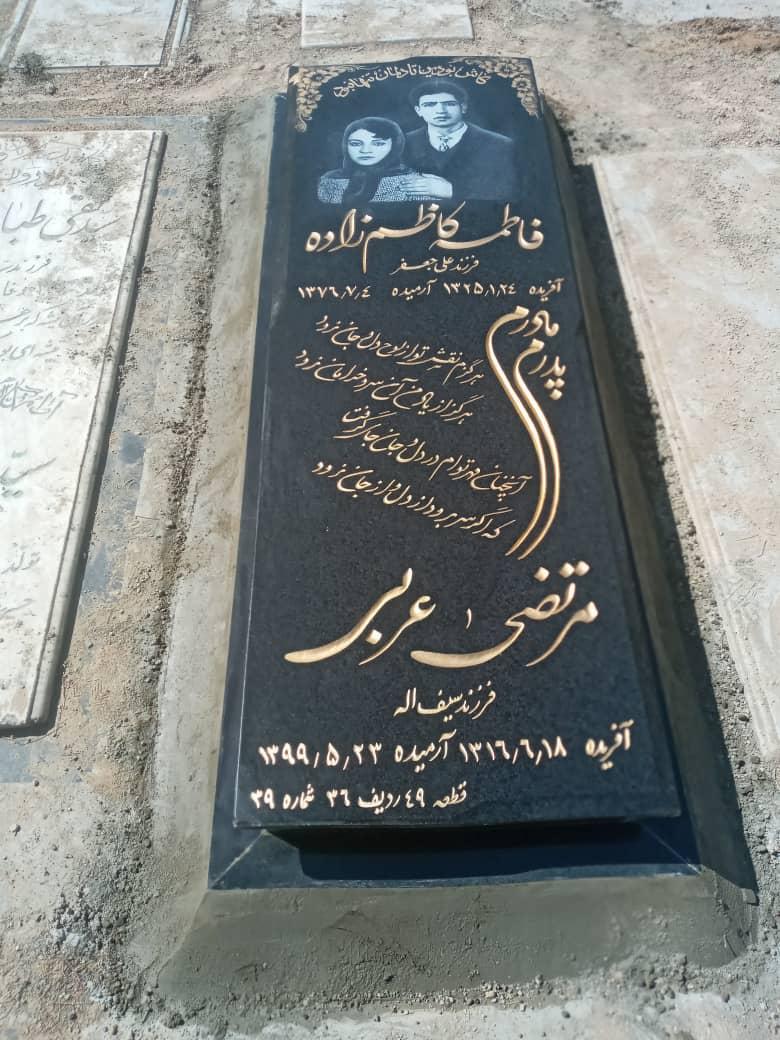 کاش بودید تا دلمان تنها نبود
فاطمه کاظم زاده
فرزند علی جعفر
آفریده ۱۳۲۵٫۱٫۲۴ آرمیده ۱۳۷۶٫۷٫۴
مادرم
پدرم
هرگزم نقش تو از لوح دل و جان نرود
هرگز از یاد من آن سرو خرامان نرود
آنچنان مهر توام در دل و جان جای گرفت
که اگر سر برود از دل و از جان نرود
مرتضی عربی
فرزند سیف اله
آفریده ۱۳۱۶٫۶٫۱۸ آرمیده ۱۳۹۹٫۵٫۲۳
قطعه ۴۹ ردیف ۳۶ شماره ۳۹